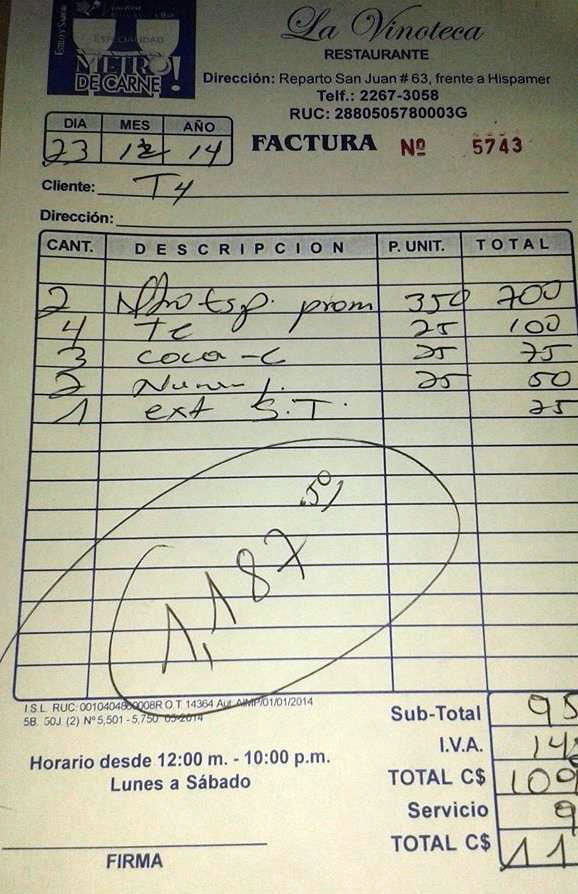 ESPECIALIDAD
METRO
DE CARNE!
La Vinoteca
RESTAURANTE
Dirección: Reparto San Juan # 63, frente a Hispamer
Telf.: 2267-3058
RUC: 2880505780003G
DIA MES AÑO
23 12 14
FACTURA Nº 5743
Cliente: T4
Dirección:
CANT. DESCRIPCION P. UNIT. TOTAL
2 prom 350 700
4 Te 25 100
3 coca-c 25 75
2 25 50
1 ext S.T. 25
1,187.50
I.S.L. RUC: O.T. 14364 Aut. AIMP/01/01/2014
5B. 50J. (2) Nº 5,501 - 5,750 05-2014
Horario desde 12:00 m. - 10:00 p.m.
Lunes a Sábado
FIRMA
Sub-Total 95
I.V.A. 14
TOTAL C$ 109
Servicio 9
TOTAL C$ 11